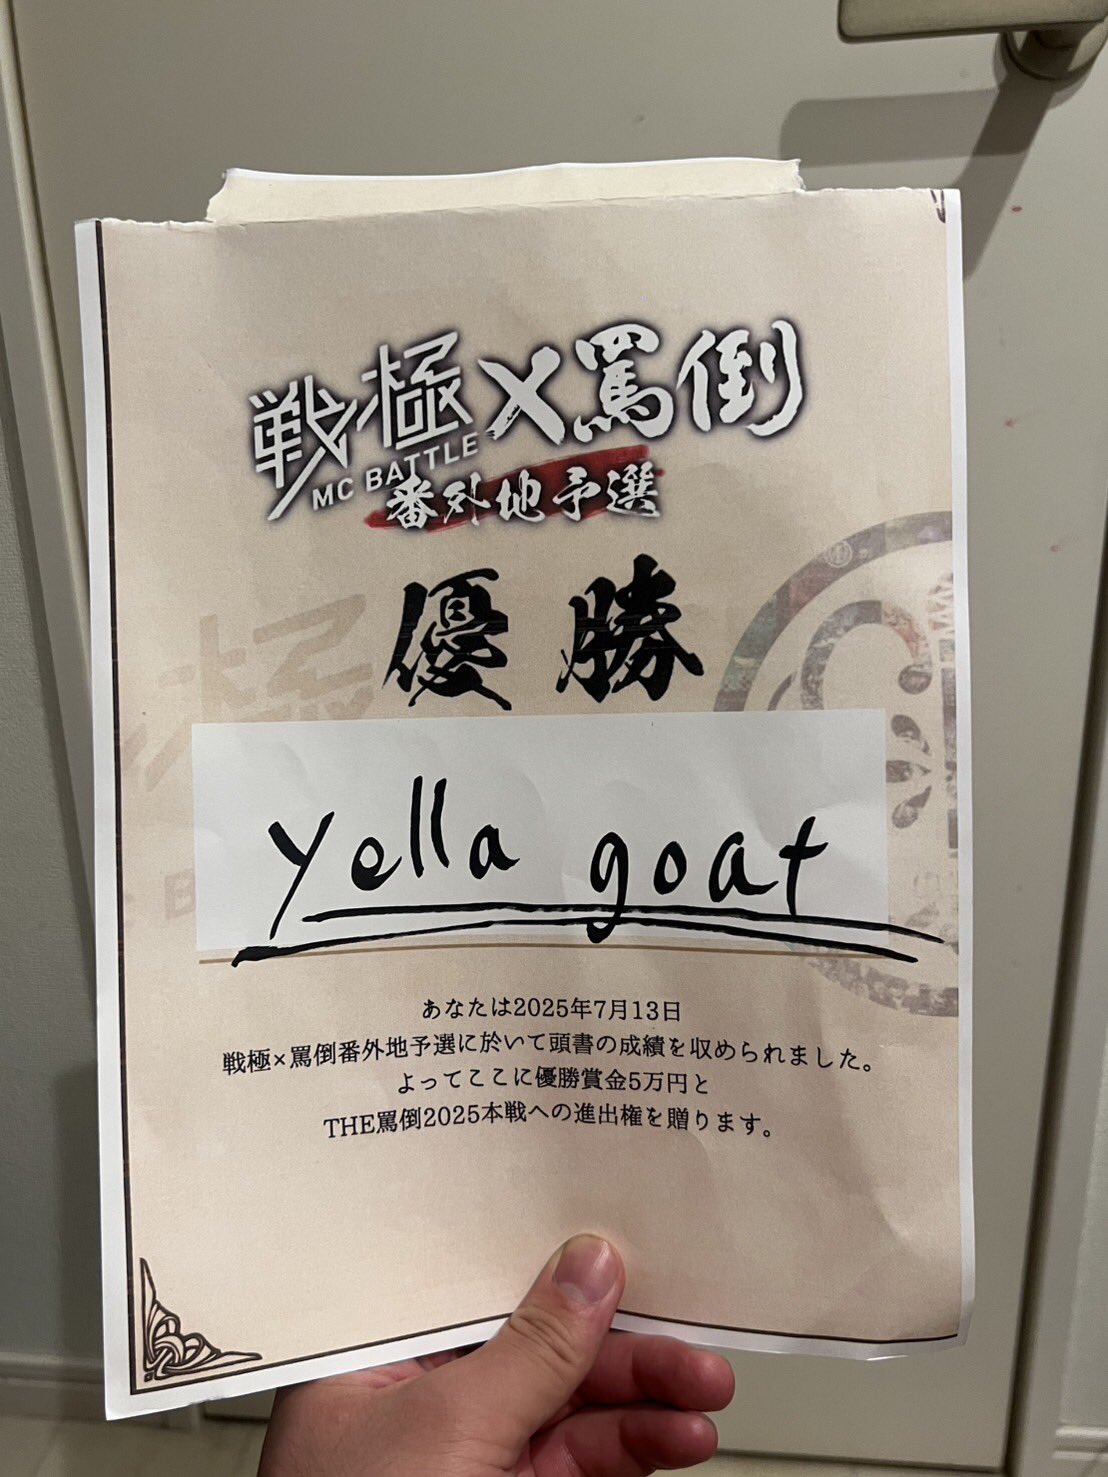 戦極×罵倒
MC BATTLE
番外地予選
優勝
yella goat
あなたは2025年7月13日
戦極×罵倒番外地予選に於いて頭書の成績を収められました。
よってここに優勝賞金5万円と
THE罵倒2025本戦への進出権を贈ります。